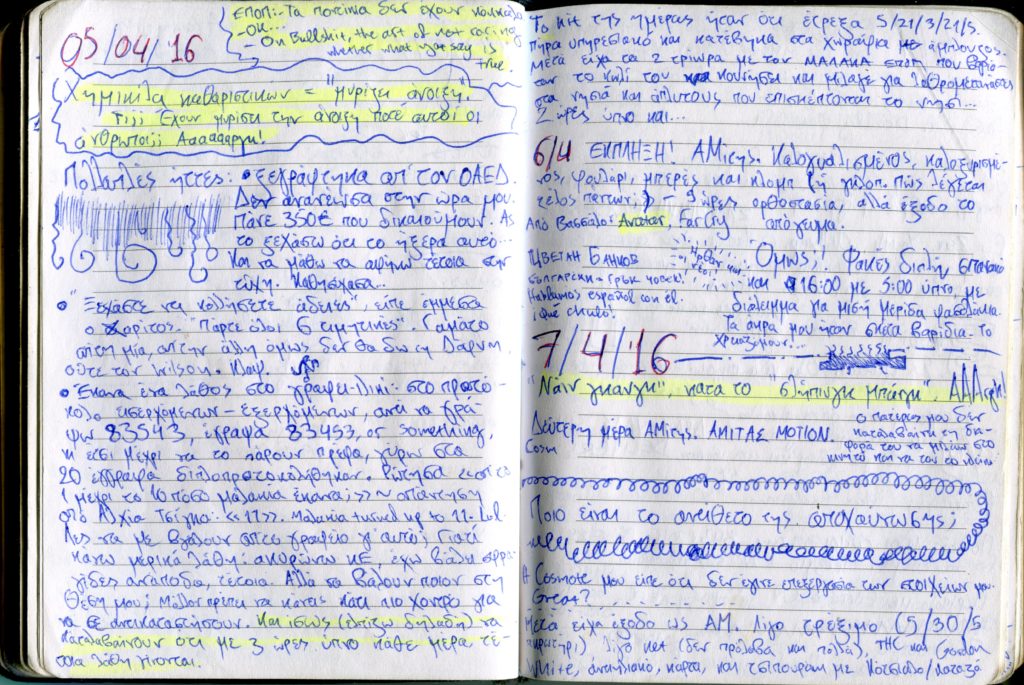 05/04/16
ΕΠΟΠ: - Τα ποτίκια δεν έχουν κουκαλο
- OK...
- On Bullshit, the art of not caring
whether what you say is
true.
Χημικίλα καθαριστικών = "μυρίζει άνοιξη".
Τι;;; Έχουν μυρίσει την άνοιξη ποτέ αυτοί οι
άνθρωποι;; Αααααάργκ!
Πολλαπλές ήττες: • Ξεγράφτηκα απ' τον ΟΑΕΔ.
Δεν ανανέωσα στην ώρα μου.
Πάνε 350€ που δικαιούμουν. Ας
το ξεχάσω ότι το ήξερα αυτό...
Και να μάθω να αφήνω τέτοια στην
τύχη. Καθησύχασα...
• "Ξεχάσατε να κολλήσετε άδειες", είπε έμμεσα
ο Χαρίτος. "Πάρτε όλοι 6 τιμητικές". Γαμάτο
απ' τη μία, απ' την άλλη όμως δεν θα δω τη Δάφνη,
ούτε τον Wilson. Κλαψ.
• Έκανα ένα λάθος στο γραφει-ιλίκι: στο πρωτό-
κολο εισερχόμενων - εξερχόμενων, αντί να γρά-
ψω 83543, έγραψα 83453, or something,
κι έτσι μέχρι να το πάρουν πρέφα, γύρω στα
20 έγγραφα διπλοπρωτοκολλήθηκαν. Ρώτησα «από το
1 μέχρι το 10 πόσο μαλακία έκανα;» ~ απάντηση
από Λχία Τσίγκα: «11». Malakia turned up to 11. Lol.
Λες να με βγάλουν απ' το γραφείο γι αυτό; Γιατί
κάνω μερικά λάθη: ακυρώνω ΚΕ, έχω βάλει σφρα-
γίδες ανάποδα, τέτοια. Αλλά να βάλουν ποιον στη
θέση μου; Μάλλον πρέπει να κάνεις κάτι πιο χοντρό για
να σε αντικαταστήσουν. Και ίσως (ελπίζω δηλαδή) να
καταλαβαίνουν ότι με 3 ώρες ύπνο κάθε μέρα τέ-
τοια λάθη γίνονται.
Το hit της ημέρας ήταν ότι έτρεξα 5/21/3/21/5.
Πήρα υπηρεσιακό και κατέβηκα στα χωράφια με άμπουτος.
Μετά είχα τα 2 τρίωρα με τον ΜΑΛΑΚΑ ΕΠΟΠ που βαριό-
ταν το κωλί του να κουνήσει και μίλαγε για λαθρομετανάστες
στα νησιά και άπλυτους που επισκέπτονται το νησί...
2 ώρες ύπνο και...
6/4 ΕΚΠΛΗΞΗ! ΑΜίτης. Καλογυαλισμένος, καλοξυρισμέ-
νος, φαλάρι, μπερές και κλομπ (ή γκλοπ. Πώς λέγεται
τέλος πάντων;) - 9 ώρες ορθοστασία, αλλά έξοδο το
Από Βασσάλο: Avatar, FarCry απόγευμα.
Цветан Банков
Български = Грък човек!
Hablamos español con él.
¡Qué chulo!
Ήρθαν και
νέοι!
Όμως;! Φακές διπλή επανω
και 16:00 με 5:00 ύπνο, με
διάλειμμα για μισή μερίδα φασολάκια.
Τα άκρα μου ήταν σκέτα βαρίδια. Το
χρειαζόμουν...
7/4/16
"Νάιν γκανγκ", κατά το "σλήπινγκ μπάγκ". ΑΑΑργκ!
Δεύτερη μέρα ΑΜίτης. ΑΜΙΤΑΣ MOTION.
Cosm
Ο πατέρας μου δεν
καταλαβαίνει τη δια-
φορά του να μιλάω στο
κινητό και να του το κλείνω
Ποιο είναι το αντίθετο της αποχαύνωσης;
Η Cosmote μου είπε ότι δεν έγινε επεξεργασία των στοιχείων μου.
Great?
Μετά είχα έξοδο ως ΑΜ. Λίγο τρέξιμο (5/30/5
ακρωτήρι), λίγο νετ (δεν πρόλαβα και πολλά), THC και Gordon
White, αναψυκτικό, κάρτα, και τσίπουραμ με Κότσιαλο/Κατσιά